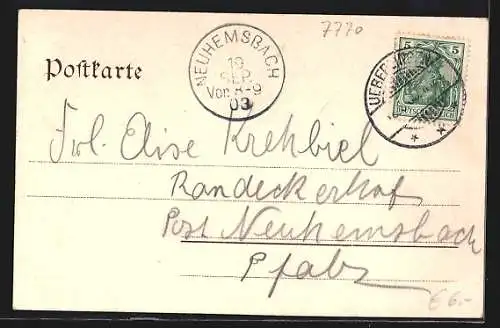 7770
Postkarte
NEUHEMSBACH
19
SEP.
Vor. 8-9
03
5 5
DEUTSCHES REICH
Frl. Elise Krehbiel
Randeckerhof
Post Neuhemsbach
Pfalz
€ 6.-